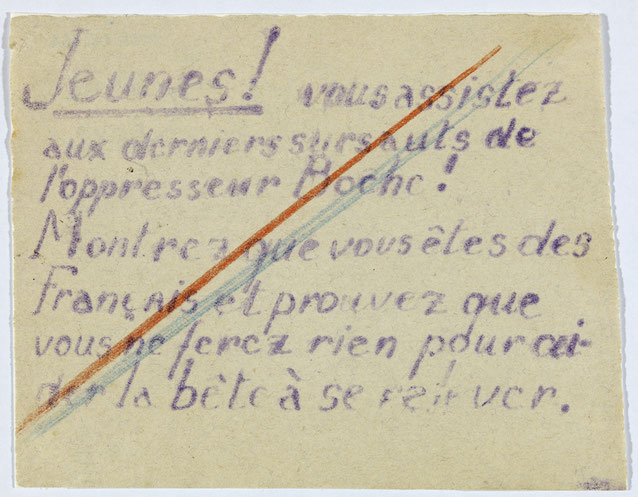 Jeunes! vous assistez
aux derniers sursauts de
l'oppresseur Boche!
Montrez que vous êtes des
Français et prouvez que
vous ne ferez rien pour ai-
der la bête à se relever.